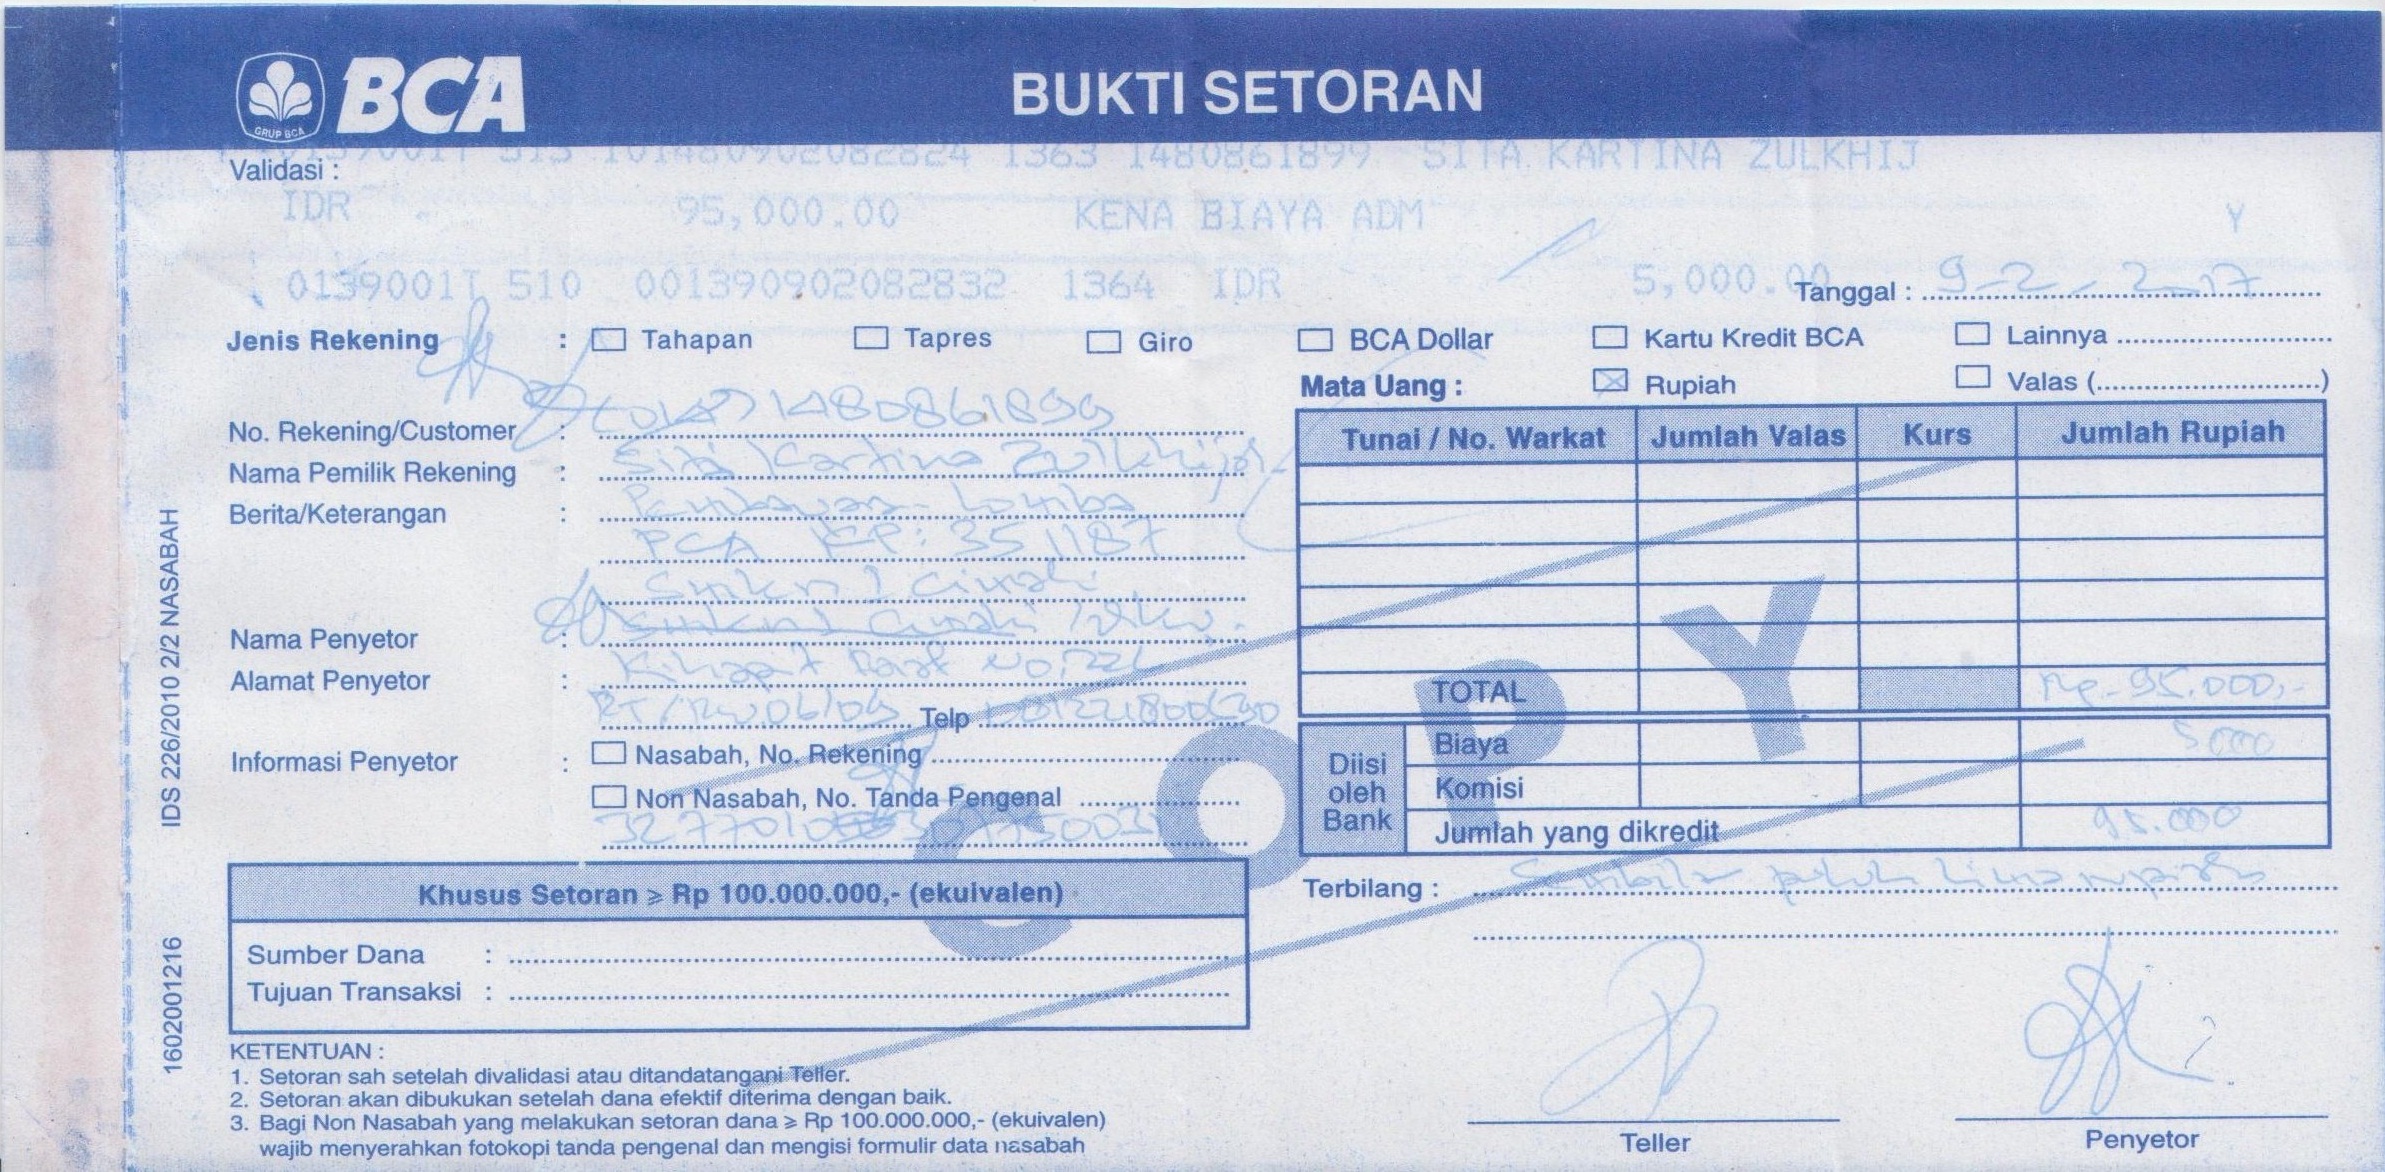 BCA
GRUP BCA
BUKTI SETORAN
Validasi :
0139001T 515 101480902082824 1363 1480861899 SITA KARTINA ZULKHIJ
IDR 95,000.00 KENA BIAYA ADM Y
0139001T 510 001390902082832 1364 IDR 5,000.00
Tanggal : 9-2-2017
Jenis Rekening : Tahapan Tapres Giro BCA Dollar Kartu Kredit BCA Lainnya
Mata Uang : Rupiah Valas ( )
No. Rekening/Customer : 1480861899
Nama Pemilik Rekening : Kartina Zulkhija
Berita/Keterangan : Lomba
PCA KP: 351187
Smkn 1 Cimahi
Nama Penyetor : Smkn 1 Cimahi
Alamat Penyetor : No.
RT/RW 06/09 Telp
Informasi Penyetor : Nasabah, No. Rekening
Non Nasabah, No. Tanda Pengenal
Tunai / No. Warkat Jumlah Valas Kurs Jumlah Rupiah
TOTAL Rp. 95.000,-
Diisi oleh Bank
Biaya 5000
Komisi
Jumlah yang dikredit 95.000
Terbilang : Sembilan puluh lima rupiah
Khusus Setoran ≥ Rp 100.000.000,- (ekuivalen)
Sumber Dana :
Tujuan Transaksi :
KETENTUAN :
1. Setoran sah setelah divalidasi atau ditandatangani Teller.
2. Setoran akan dibukukan setelah dana efektif diterima dengan baik.
3. Bagi Non Nasabah yang melakukan setoran dana ≥ Rp 100.000.000,- (ekuivalen)
wajib menyerahkan fotokopi tanda pengenal dan mengisi formulir data nasabah
Teller
Penyetor
COPY
IDS 226/2010 2/2 NASABAH
1602001216